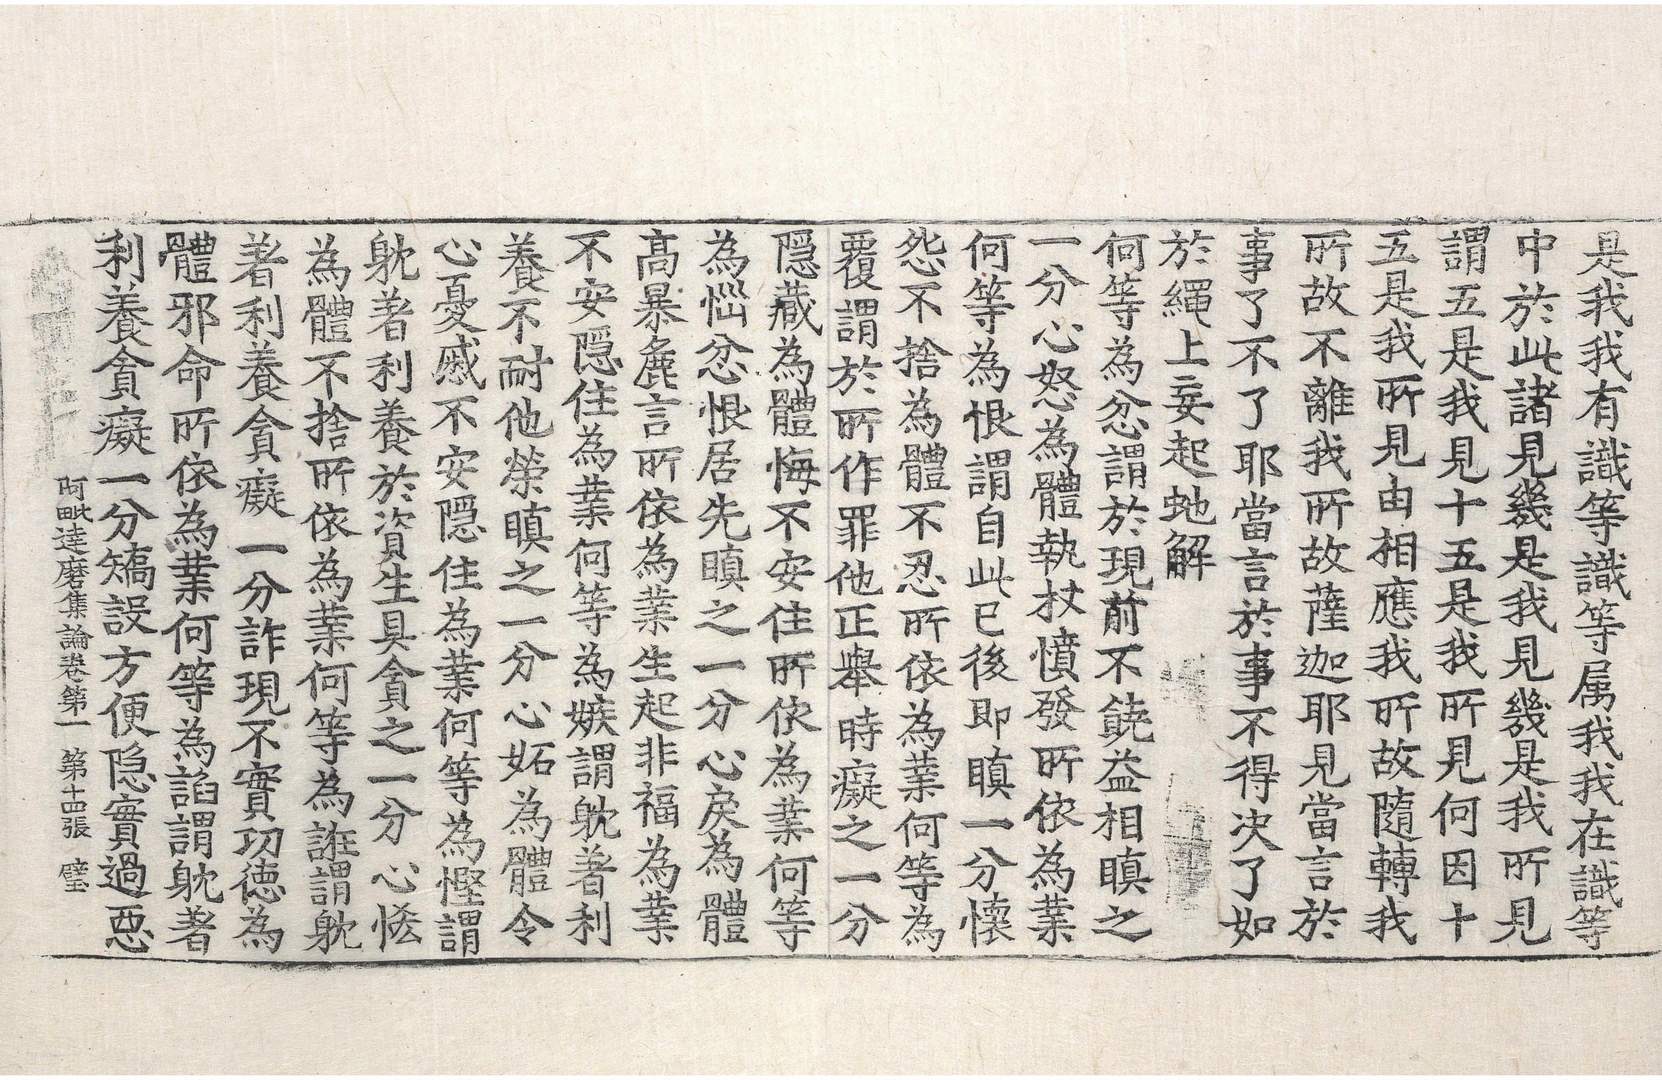 是我我有識等識等属我我在識等
中於此諸見幾是我見幾是我所見
謂五是我見十五是我所見何因十
五是我所見由相應我所故隨轉我
所故不離我所故薩迦耶見當言於
事了不了耶當言於事不得決了如
於繩上妄起虵解
何等為忿謂於現前不饒益相瞋之
一分心怒為體執杖憤發所依為業
何等為恨謂自此已後即瞋一分懷
怨不捨為體不忍所依為業何等為
覆謂於所作罪他正舉時癡之一分
隱藏為體悔不安住所依為業何等
為惱忿恨居先瞋之一分心戾為體
高暴麁言所依為業生起非福為業
不安隱住為業何等為嫉謂躭著利
養不耐他榮瞋之一分心妬為體令
心憂慼不安隱住為業何等為慳謂
躭著利養於資生具貪之一分心恡
為體不捨所依為業何等為誑謂躭
著利養貪癡一分詐現不實功德為
體邪命所依為業何等為諂謂躭著
利養貪癡一分矯設方便隱實過惡
阿毗達磨集論卷第一 第十四張 璧